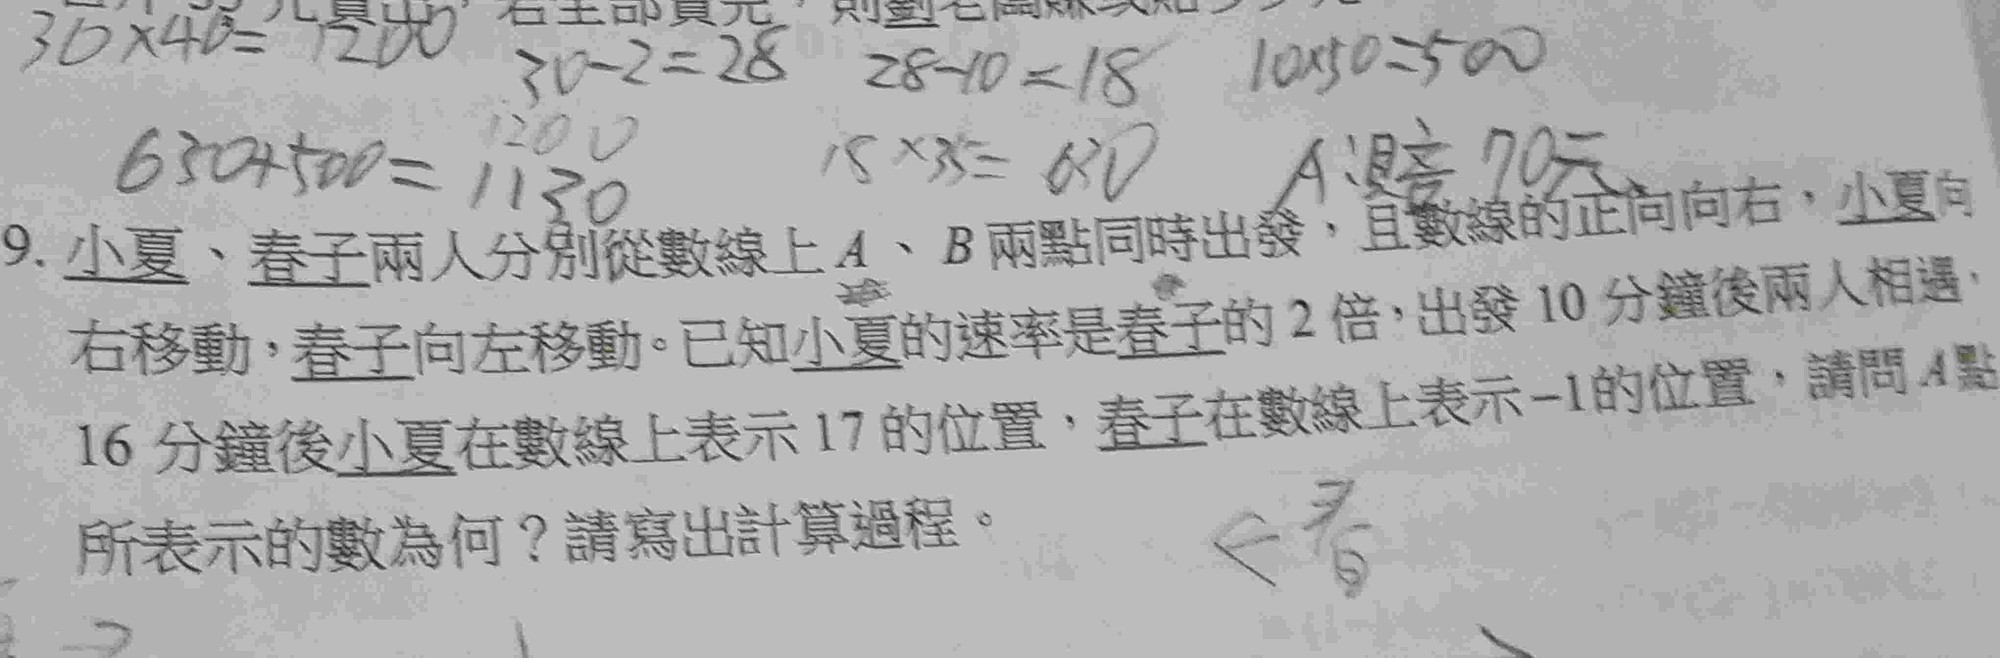 30×40=1200
30-2=28 28-10=18 10×50=500
1200
630+500=1130 18×35=630 A:賠70元
9. 小夏、春子兩人分別從數線上 A、B 兩點同時出發,且數線的正向向右,小夏向
右移動,春子向左移動。已知小夏的速率是春子的 2 倍,出發 10 分鐘後兩人相遇,
16 分鐘後小夏在數線上表示 17 的位置,春子在數線上表示-1的位置,請問 A 點
所表示的數為何?請寫出計算過程。